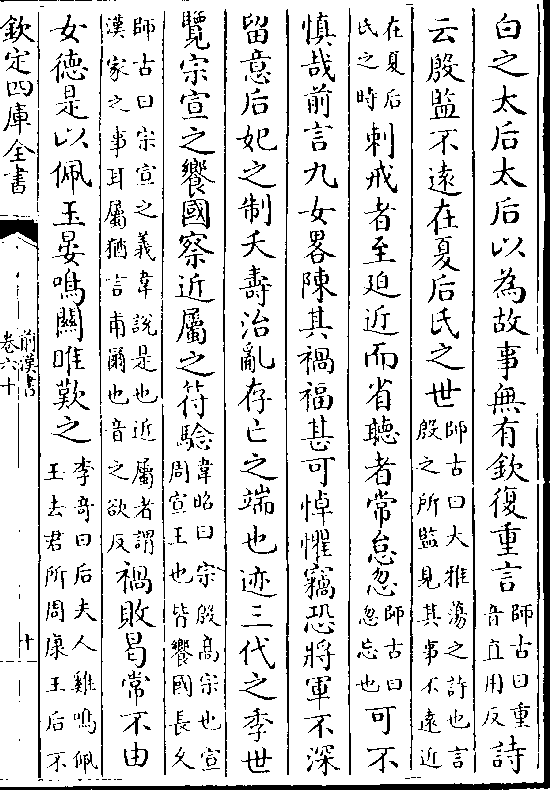 白之太后太后以為故事無有欽復重言師古曰重音直用反詩
云殷監不遠在夏后氏之世師古曰大雅蕩之詩也言殷之所監見其事不遠近
在夏后氏之時刺戒者至迫近而省聽者常怠忽師古曰忽忘也可不
慎哉前言九女畧陳其禍福甚可悼懼竊恐將軍不深
留意后妃之制夭壽治亂存亡之端也迹三代之季世
覽宗宣之饗國察近屬之符驗韋昭曰宗殷高宗也宣周宣王也皆饗國長久
師古曰宗宣之義韋說是也近屬者謂漢家之事耳屬猶言甫爾也音之欲反禍敗曷常不由
女德是以佩玉晏鳴關雎歎之李奇曰后夫人雞鳴佩玉去君所周康王后不
欽定四庫全書
前漢書
卷六十
十